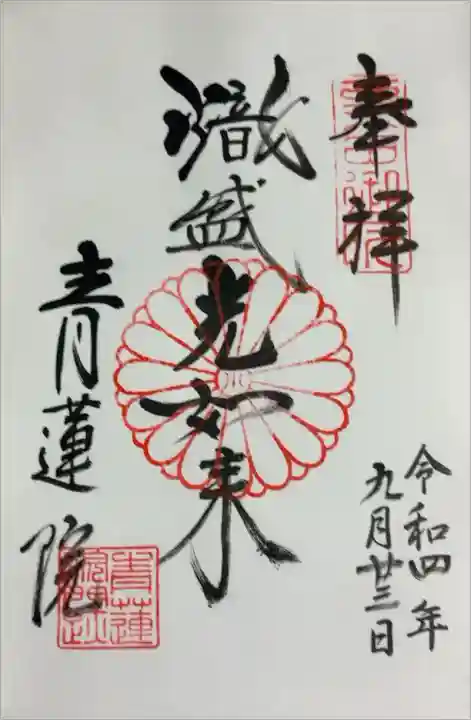 奉拝
熾盛光如来
青蓮院
令和四年
九月廿三日